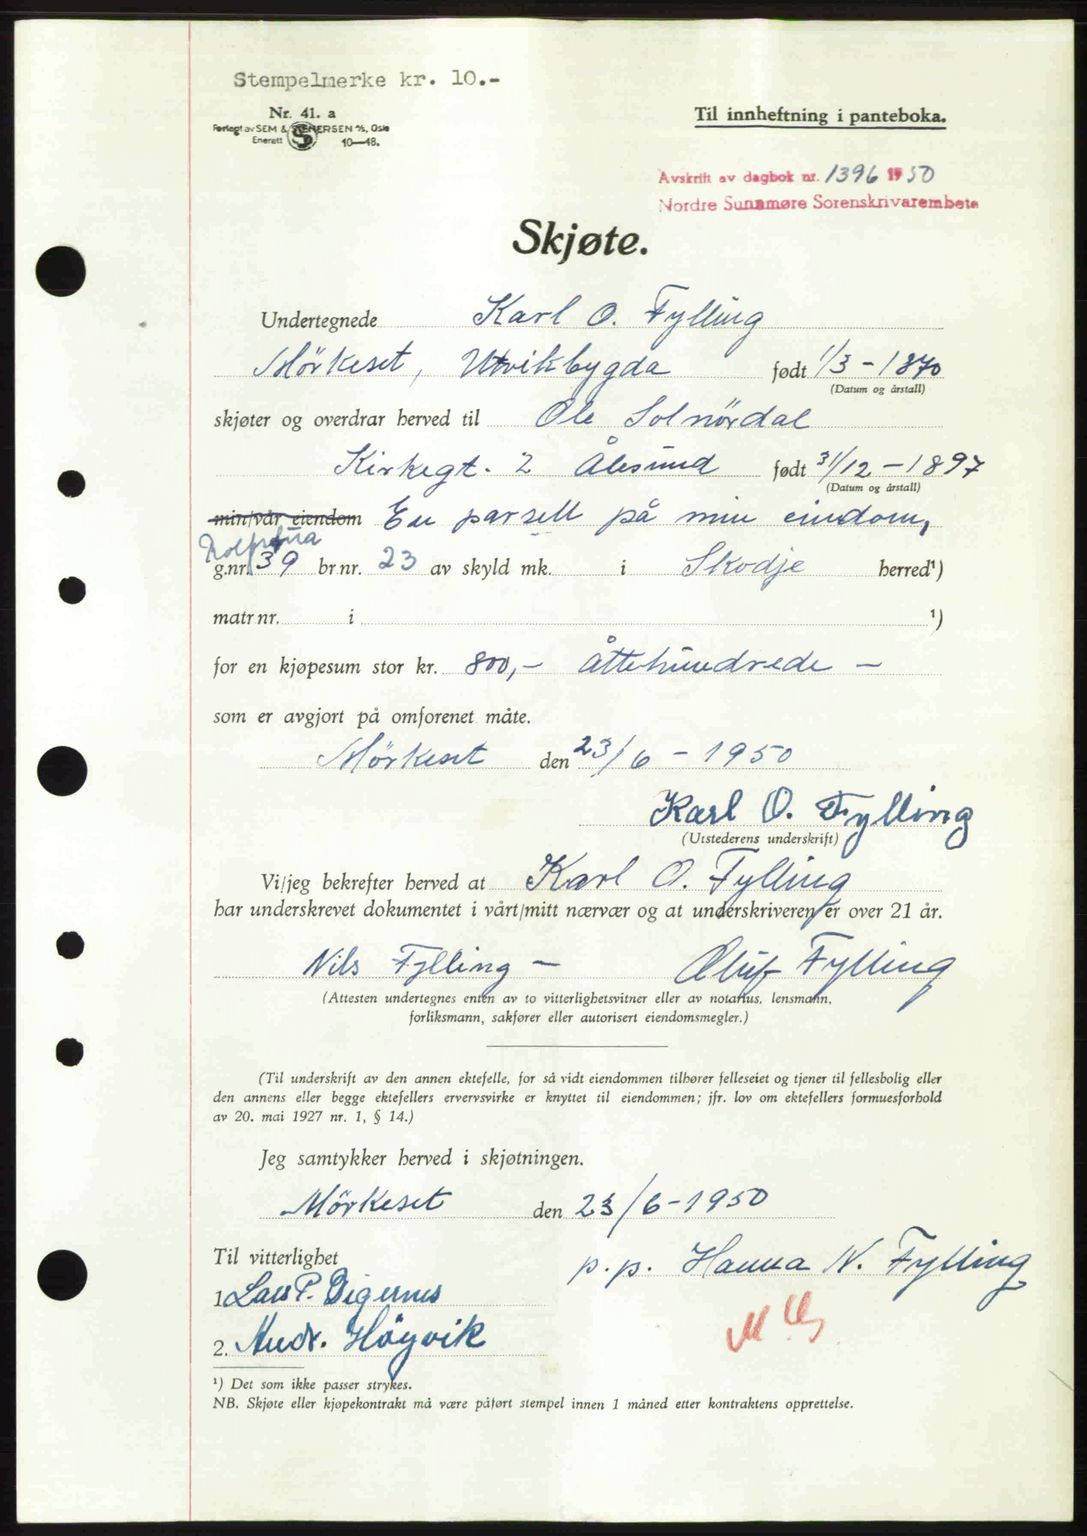 Stempelmerke kr. 10.-
Nr. 41. a
Forlagt av SEM & STENERSEN A/S, Oslo
Enerett 10—48.
Til innheftning i panteboka.
Avskrift av dagbok nr. 1396 1950
Nordre Sunnmøre Sorenskrivarembete
Skjøte.
Undertegnede Karl O. Fylling
Mörkeset, Utvikbygda født 1/3 - 1870
(Datum og årstall)
skjøter og overdrar herved til Ole Solnördal
Kirkegt. 2 Ålesund født 31/12 - 1897
(Datum og årstall)
min/vår eiendom En parsell på min eindom,
g.nr. 39 br nr. 23 av skyld mk. i Skodje herred¹)
matr nr. i ¹)
for en kjøpesum stor kr. 800,- åttehundrede -
som er avgjort på omforenet måte.
Mörkeset den 23/6 - 1950
Karl O. Fylling
(Utstederens underskrift)
Vi/jeg bekrefter herved at Karl O. Fylling
har underskrevet dokumentet i vårt/mitt nærvær og at underskriveren er over 21 år.
Nils Fylling - Oluf Fylling
(Attesten undertegnes enten av to vitterlighetsvitner eller av notarius, lensmann,
forliksmann, sakfører eller autorisert eiendomsmegler.)
(Til underskrift av den annen ektefelle, for så vidt eiendommen tilhører felleseiet og tjener til fellesbolig eller
den annens eller begge ektefellers ervervsvirke er knyttet til eiendommen; jfr. lov om ektefellers formuesforhold
av 20. mai 1927 nr. 1, § 14.)
Jeg samtykker herved i skjøtningen.
Mörkeset den 23/6-1950
Til vitterlighet
p.p. Hanna N. Fylling
1. Lars P. Digernes
2. Andr. Höyvik
¹) Det som ikke passer strykes.
NB. Skjøte eller kjøpekontrakt må være påført stempel innen 1 måned etter kontraktens opprettelse.